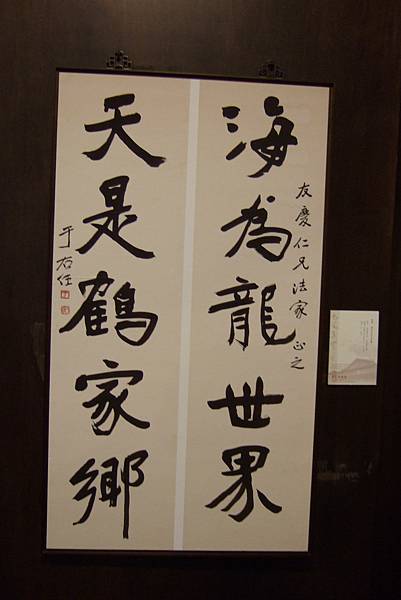 海為龍世界
友慶仁兄法家正之
天是鶴家鄉
于右任